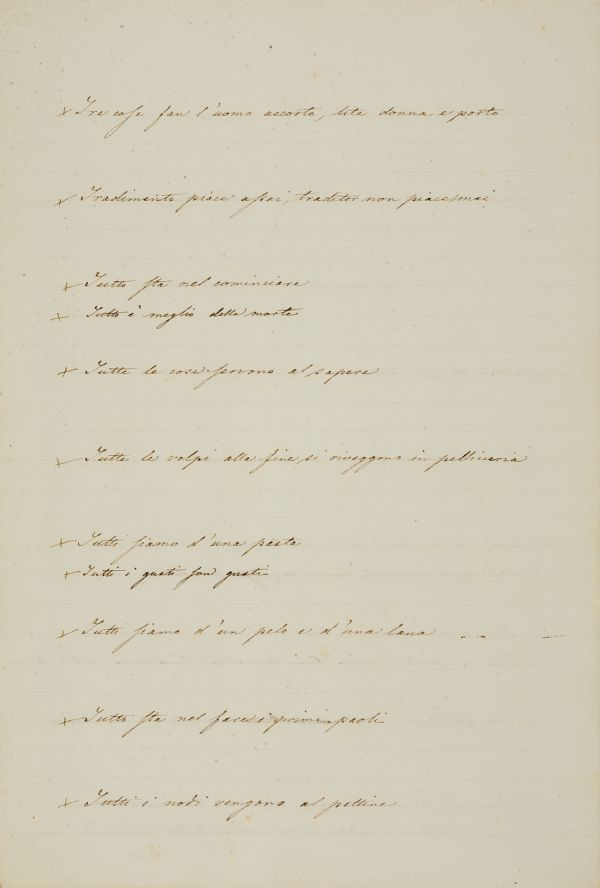 x Tre cose fan l'uomo accorto, lite donna e porto
x Tradimento piace assai, traditor non piace mai
x Tutto sta nel cominciare
x Tutto è meglio della morte
x Tutte le cose servono al sapere
x Tutte le volpi alla fine si riveggono in pellicceria
x Tutti siamo d'una pasta
x Tutti i gusti son gusti
x Tutti siamo d'un pelo e d'una lana
x Tutto sta nel fare i primi paoli
x Tutti i nodi vengono al pettine